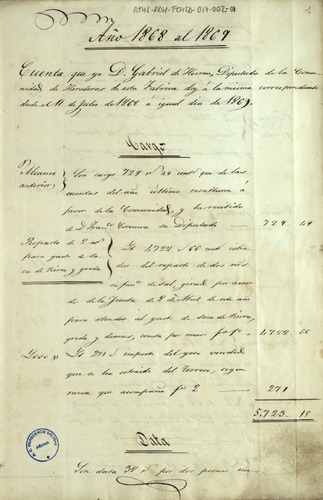 ATHA-DAH-FCHSA-017-002-01
1
Año 1868 al 1869
Cuenta que yo D. Gabriel de Herran, Diputado de la Comu-
nidad de Herederos de esta Fabrica doy a la misma correspondiente
desde el 11 de Julio de 1868 a igual dia de 1869.
Cargo
Alcance anterior
Son cargo 729 rs 49 cents que de las
cuentas del año último resultaron a
favor de la Comunidad, y he recibido
de D. su Diputado 729 49
Reparto de 2 mrs
para gasto de
de tierra y greda
Id 4,722 rs 66 cents cobra-
dos del reparto de dos mrs
en fanega de sal, girado por acuerdo
de la Junta de 8 de Abril de este año
para atender al gasto de saca de tierra,
greda y demas, consta por 4,722 66
Yeso
Id 271 rs importe del yeso vendido
que se ha extraido del terreno, segun
que acompaña 2 271
5.723 15
Data
Son data 38 rs por dos
AÑANA